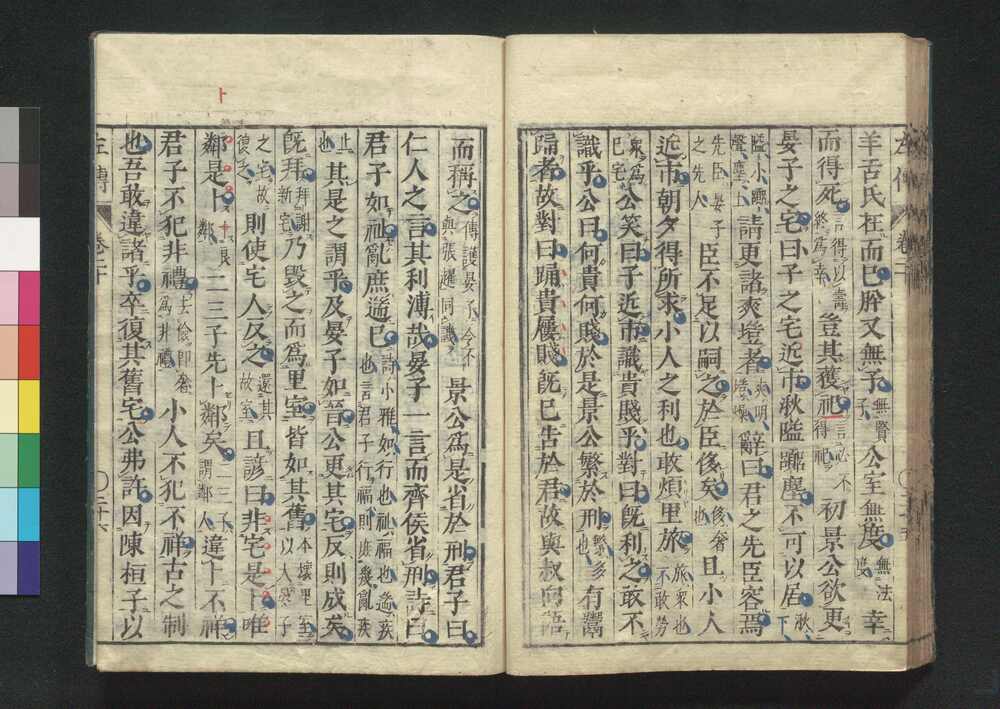 羊舌氏在而已肸又無子無賢子公室無度無法度幸
而得死言得以壽終爲幸豈其獲祀言必不得祀初景公欲更
晏子之宅曰子之宅近市湫隘囂塵不可以居湫下
隘小囂聲塵土請更諸爽塏者爽明塏燥辭曰君之先臣容焉
先臣晏子之先人臣不足以嗣之於臣侈矣侈奢也且小人
近市朝夕得所求小人之利也敢煩里旅旅衆也不敢勞
衆爲己宅公笑曰子近市識貴賤乎對曰既利之敢不
識乎公曰何貴何賤於是景公繁於刑繁多也有鬻
踊者故對曰踊貴屨賤既已告於君故與叔向語
而稱之傳護晏子令不與張趯同譏景公爲是省於刑君子曰
仁人之言其利溥哉晏子一言而齊侯省刑詩曰
君子如祉亂庶遄已詩小雅如行也祉福也遄疾也言君子行福則庶幾亂疾
止也其是之謂乎及晏子如晉公更其宅反則成矣
既拜拜謝新宅乃毀之而爲里室皆如其舊本壞里室以大晏子
之宅故復之則使宅人反之還其故室且諺曰非宅是卜唯
鄰是卜卜良鄰二三子先卜鄰矣二三子謂鄰人違卜不祥
君子不犯非禮去儉即奢爲非禮小人不犯不祥古之制
也吾敢違諸乎卒復其舊宅公弗許因陳桓子以
左傳 卷二十 二十六